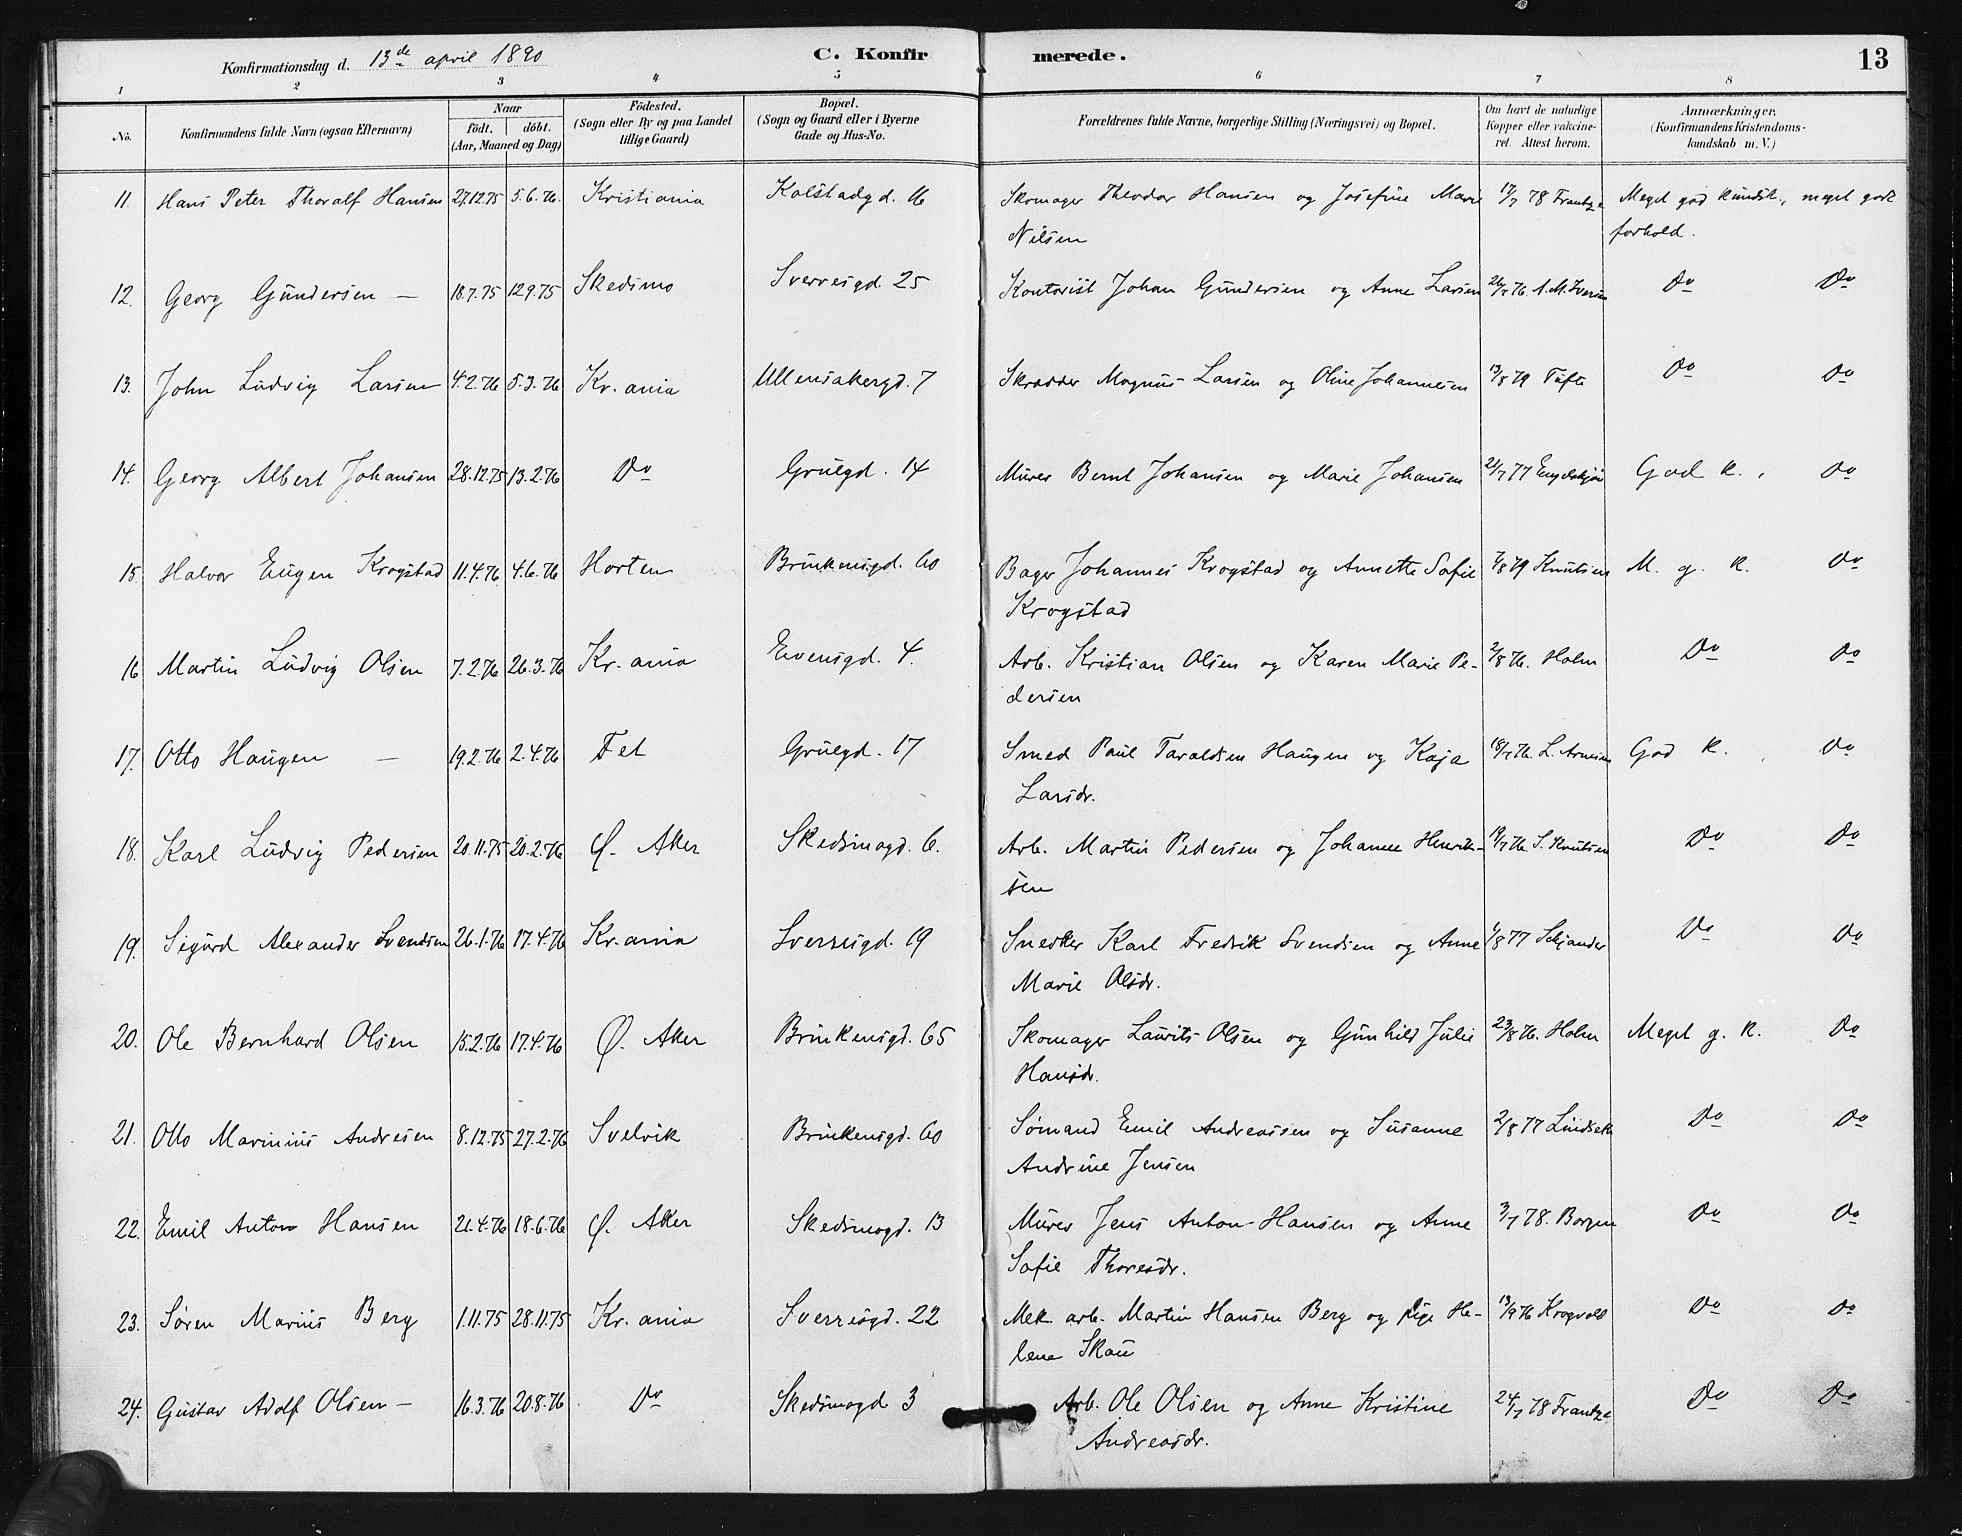 Konfirmationsdag d. 13de april 1890 C. Konfirmerede. 13
1 2 3 4 5 6 7 8
No. Konfirmandens fulde Navn (ogsaa Efternavn) Naar födt. döbt. (Aar, Maaned og Dag) Födested. (Sogn eller By og paa Landet tillige Gaard) Bopæl. (Sogn og Gaard eller i Byerne Gade og Hus-No. Forældrenes fulde Navne, borgerlige Stilling (Næringsvei) og Bopæl. Om havt de naturlige Kopper eller vakcineret. Attest herom. Anmærkninger. (Konfirmandens Kristendomskundskab m. V.)
11. Hans Peter Thoralf Hansen 27.12.75 5.6.76. Kristiania Kolstadgd. 16 Skomager Theodor Hansen og Josefine Marie 17/7 78 Frantze Meget god kundsk., meget godt
Nilsen forhold.
12. Georg Gundersen — 18.7.75 12.9.75 Skedsmo Sverresgd. 25 Kontorist Johan Gundersen og Anne Larsen 26/7 76. A. M. Iversen Do Do
13. John Ludvig Larsen 4.2.76 5.3.76 Kr.ania Ullensakergd. 7 Skrædder Magnus Larsen og Oline Johannesen 13/8 79 Tofte Do Do
14. Georg Albert Johansen 28.12.75 13.2.76 Do Gruegd. 14 Murer Bernt Johansen og Marie Johansen 21/7 77 God k., Do
15. Halvor Eugen Krogstad 11.4.76 4.6.76 Horten Brinkensgd. 60 Bager Johannes Krogstad og Annette Sofie 7/8 79 Knutsen M. g. k. Do
Krogstad
16 Martin Ludvig Olsen 7.2.76 26.3.76 Kr.ania Evensgd. 4. Arb. Kristian Olsen og Karen Marie Pe- 2/8 76. Holm Do Do
dersen
17. Otto Haugen — 19.2.76 2.4.76 Fet Gruegd. 17 Smed Paul Taraldsen Haugen og Kaja 18/7 76. L. Arnesen God k. , Do
Larsdr.
18. Karl Ludvig Pedersen 20.11.75 20.2.76 Ø. Aker Skedsmogd. 6. Arb. Martin Pedersen og Johanne Henrik- 19/7 76. S. Knutsen Do Do
sen
19. Sigurd Alexander Svendsen 26.1.76 17.4.76 Kr.ania Sverresgd. 19 Snedker Karl Fredrik Svendsen og Anne 1/8 77 Schjander Do Do
Marie Olsdr.
20. Ole Bernhard Olsen 15.2.76 17.4.76 Ø. Aker Brinkensgd. 65 Skomager Laurits Olsen og Gunhild Julie 23/8 76. Holm Meget g. k. Do
Hansdr.
21. Otto Marinius Andresen 8.12.75 27.2.76 Svelvik Brinkensgd. 60 Sømand Emil Andreassen og Susanne 2/8 77 Do Do
Andrine Jensen
22. Emil Anton Hansen 21.4.76 18.6.76 Ø. Aker Skedsmogd. 13 Murer Jens Anton Hansen og Anne 3/7 78. Borgen Do Do
Sofie Thoresdr.
23. Søren Marius Berg 1.11.75 28.11.75 Kr.ania Sverresgd. 22 Mek. arb. Martin Hansen Berg og pige He- 13/9 76 Krogvold Do Do
lene Skau
24. Gustav Adolf Olsen — 16.3.76 20.8.76 Do Skedsmogd 3 Arb. Ole Olsen og Anne Kristine 24/7 78 Frantze Do Do
Andreasdr.